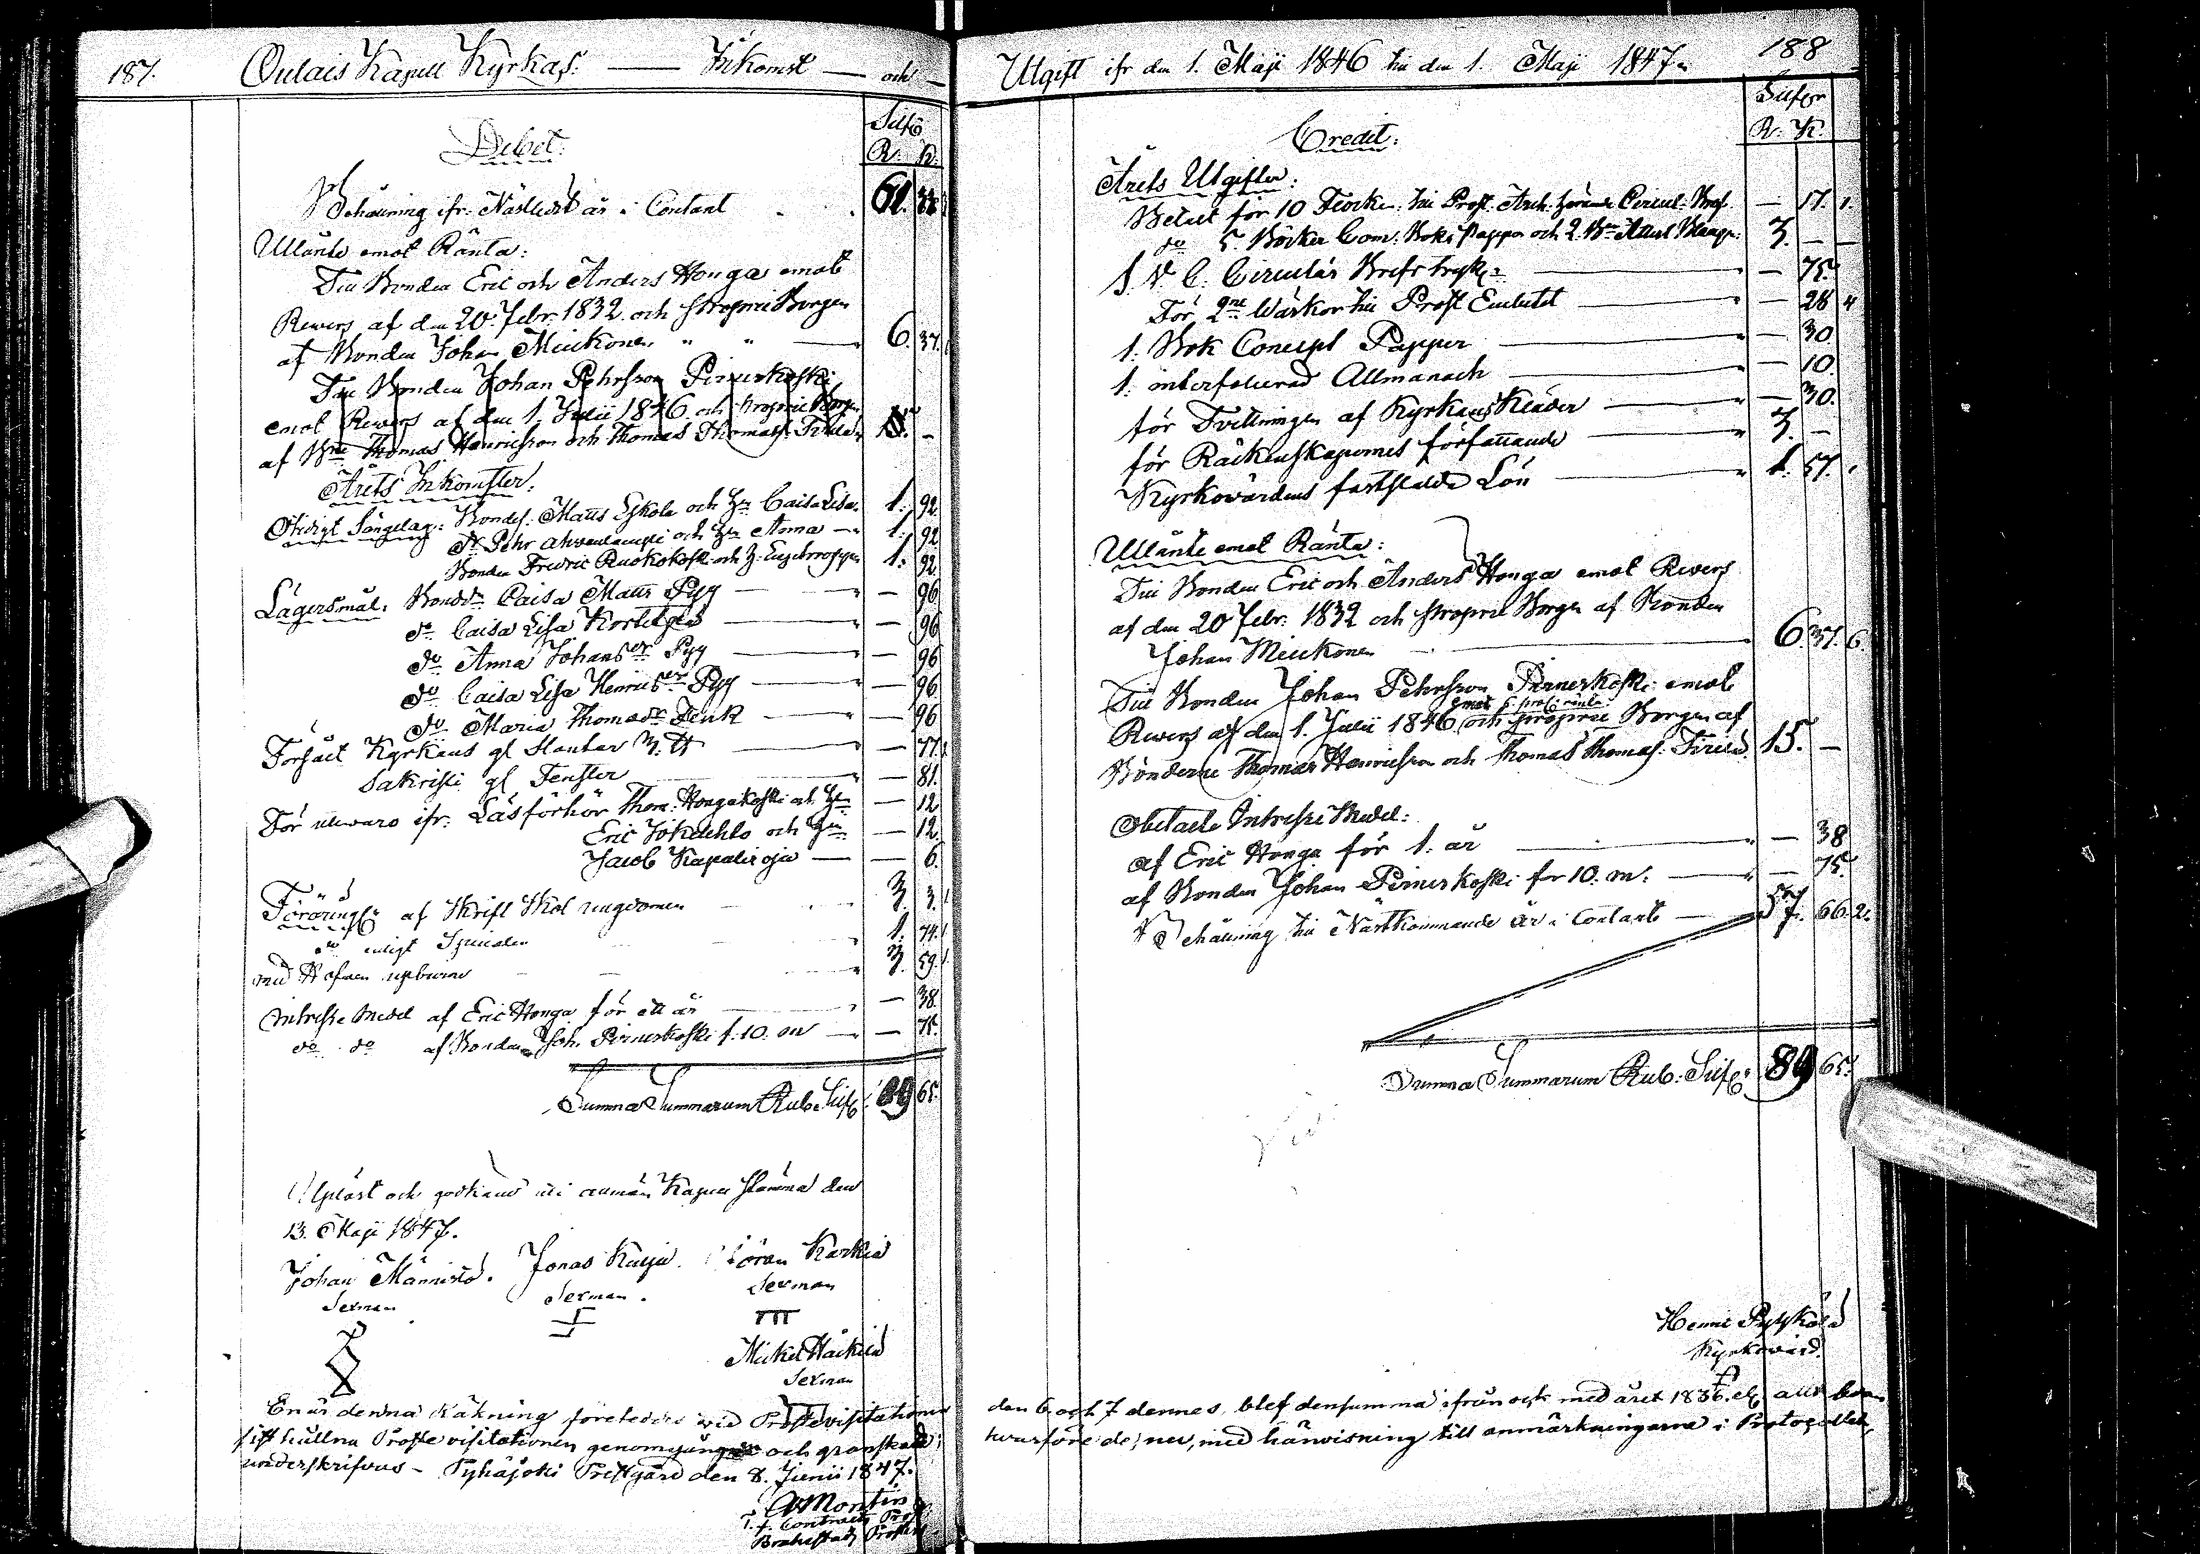 187.
Oulais Kapell Kyrkas: — Inkomst — och —
Debet:
Silfr
R. K.
Behållning ifr: Nästledit år i Contant 61. 38
Utlånte emot Ränta:
Till Bonden Eric och Anders Honga emot
Revers af den 20 Febr. 1832. och proprie Borgen
af Bonden Johan Miukonen " " — 6. 37.
Till Bonden Johan Pehrsson Pirneskoski
emot Revers af den 1. Julii 1846 och proprie Borgen
af Bne Thomas Henricsson och Thomas Thomass: 15. —
Årets Inkomster:
Otidigt Sängelag: Bondes: Matts Eskola och Hu Caisa Lisa 1. 92.
Dr Pehr och Hu Anna — 1. 92
Bonden Fredric Ruokokoski och H: 1. 92.
Lägersmål: Bondd: Caisa Matts Pyy — — 96
do Caisa Lisa — — 96
do Anna Johansdr Pyy — — 96
do Caisa Lisa Henricsdr Pyy — — 96
do Maria Thomasdr — — 96
Försålt Kyrkans gl. 3. — — 77.
Sakristi gl Fenster — — 81.
För utewaro ifr: Läsförhör Thom: Hongakoski och Hu — 12
Eric Jokelehto och Hu — 12.
Jacob Kapalisoja — — 6.
Föräring: af Skrift Skol ungdomen 3. 3.
do enligt 1. 74.
med Hofven upburne 3. 59.
Intresse Medel af Eric Honga för ett år — — 38.
do do af Bonden Joh. Pirneskoski f. 10. m — — 75.
Summa Summarum Rub. Silfr: 89 65.
Upläst och godkänd uti allmän Kapell stämma den
13. Maji 1847.
Johan Männistö. Jonas Karja. Göran Karkia
Sexman Sexman. Sexman
Mickel Häikiö
Sexman
Enär denna Räkning företeddes vid Prostevisitationen
sist hållna Proste visitationen genomgången och granskad;
underskrifves — Pyhäjoki Prestgård den 8. Junii 1847.
A Montin
T. f. Contracts Prost
Brahestads Prosteri
Utgift ifr den 1. Maji 1846 till den 1. Maji 1847.
188
Silfvr
R. K.
Credit:
Årets Utgifter:
Betalt för 10 till Prost. Circul: Bref — 17. 1.
do 5. Böcker Conc: Boks Papper och 2. 3. — —
Circulär Brefs — — 75.
För 2ne till Prost Embetet — — 28 4
1. Bok Concept Papper — — 30
1. interfolierad Allmanach — — 10.
för Tvettningen af Kyrkans Kläder — — 30.
för Räkenskapernes författande — 3. —
Kyrkowärdens fastställde Lön — 1. 57.
Utlånte emot Ränta:
Till Bonden Eric och Anders Honga emot Revers
af den 20 Febr: 1832 och proprie Borgen af Bonden
Johan Miukonen — 6. 37. 6.
Till Bonden Johan Pehrsson Pirneskoski emot
emot 6 proC: ränta
Revers af den 1. Julii 1846 och proprie Borgen af
Bönderne Thomas Henricsson och Thomas Thomas: 15. —
Obetalte Intresse Medel:
af Eric Honga för 1. år — — 38
af Bonden Johan Pirneskoski for 10. m: — — 75.
Behållning till Nästkommande år i Contante — 57. 66. 2.
Summa Summarum Rub: Silfr: 89 65.
Henric Pyykölä
Kyrkowärd.
den 6 och 7 dennes, blef densamma ifrån och med året 1836.
hvarföre denne, med hänvisning till anmärkningarna i Protocollet,